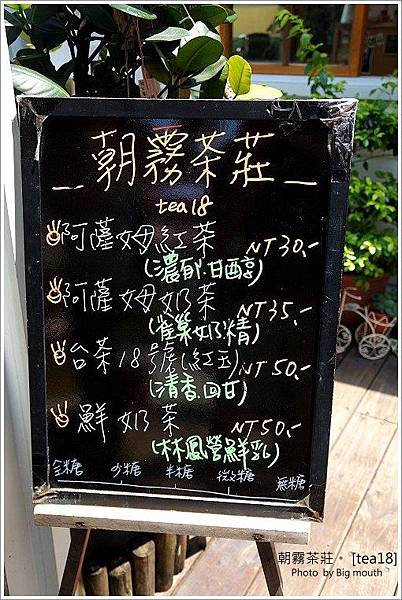 朝霧茶莊
tea18
阿薩姆紅茶 NT30.-
(濃郁.甘醇)
阿薩姆奶茶 NT35.-
(雀巢奶精)
台茶18號(紅玉) NT50.-
(清香.回甘)
鮮奶茶 NT50.-
(林鳳營鮮乳)
全糖 少糖 半糖 微糖 無糖
朝霧茶莊。[tea18]
Photo by Big mouth